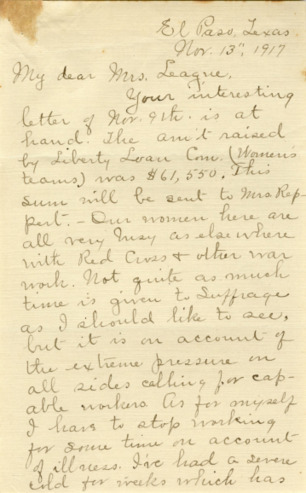 El Paso, Texas
Nov. 13", 1917
My dear Mrs. League,
Your interesting
letter of Nov. 9th. is at
hand. The am't raised
by Liberty Loan Com. (Women's
teams) was $61,550. This
sum will be sent to Mrs. Rep-
pert. - Our women here are
all very busy as elsewhere
with Red Cross & other war
work. Not quite as much
time is given to Suffrage
as I should like to see,
but it is on account of
the extreme pressure on
all sides calling for cap-
able workers. As for myself
I have to stop working
for some time on account
of illness. I've had a severe
cold for weeks which has